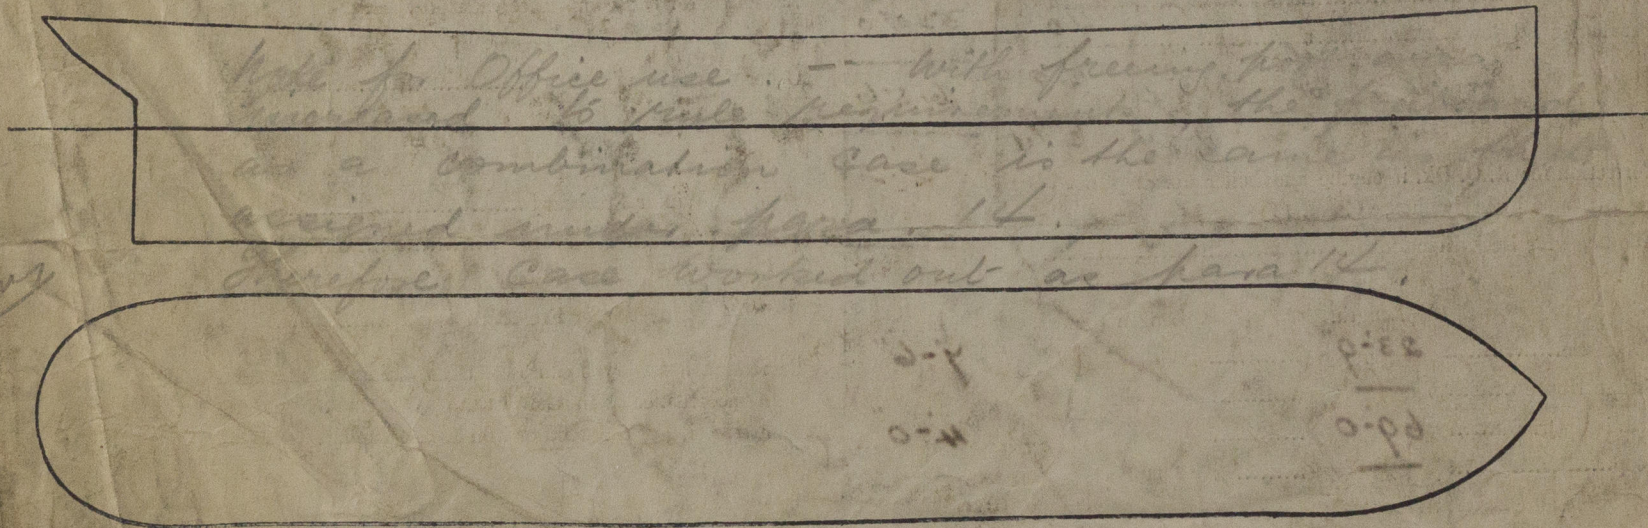 Note for Office use. -- With freeing port area
increased to rule requirements the freeboard
as a combination case is the same as
assigned under para 14.
Therefore case worked out as para 14.
7-6 23-9
4-0 69-0